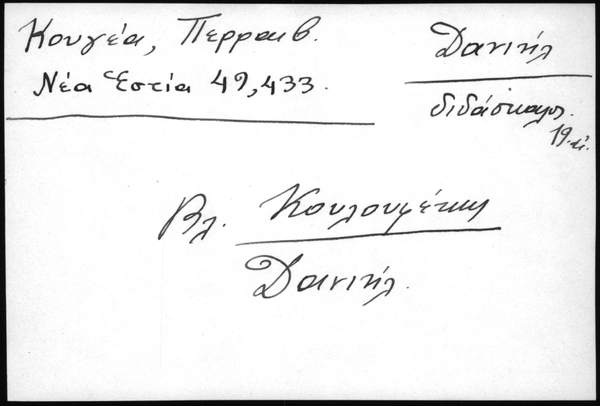 Κουγέα, Περραιβ.
Νέα Εστία 49,433.
Δανιήλ
διδάσκαλος.
19.αἰ.
Βλ. Κουλουφέκης
Δανιήλ.